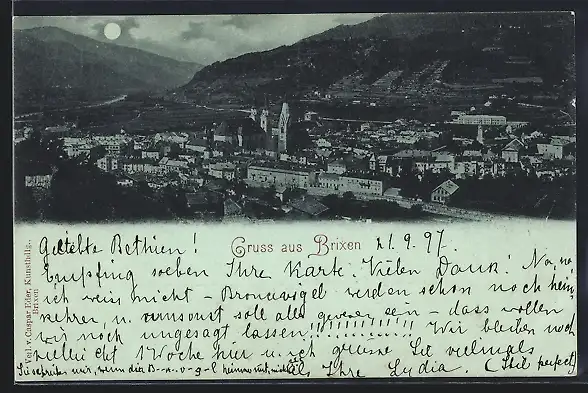 Geliebte Bethien! Gruss aus Brixen 21.9.97.
Empfing soeben Ihre Karte. Vielen Dank! Na, na
ich weiss nicht – werden schon noch heim-
kehren, u. umsonst soll alles gewesen sein – dass wollen
wir noch ungesagt lassen!!!!!!!!!!!! Wir bleiben noch
vielleicht 1 Woche hier u. ich grüsse Sie vielmals
als Ihre Lydia. (Stil perfect)
Sie schreiben mir, wenn die B-n-v-g-l heimkommt, nicht
Verl. v. Caspar Eder, Kunsthdlg.
Brixen